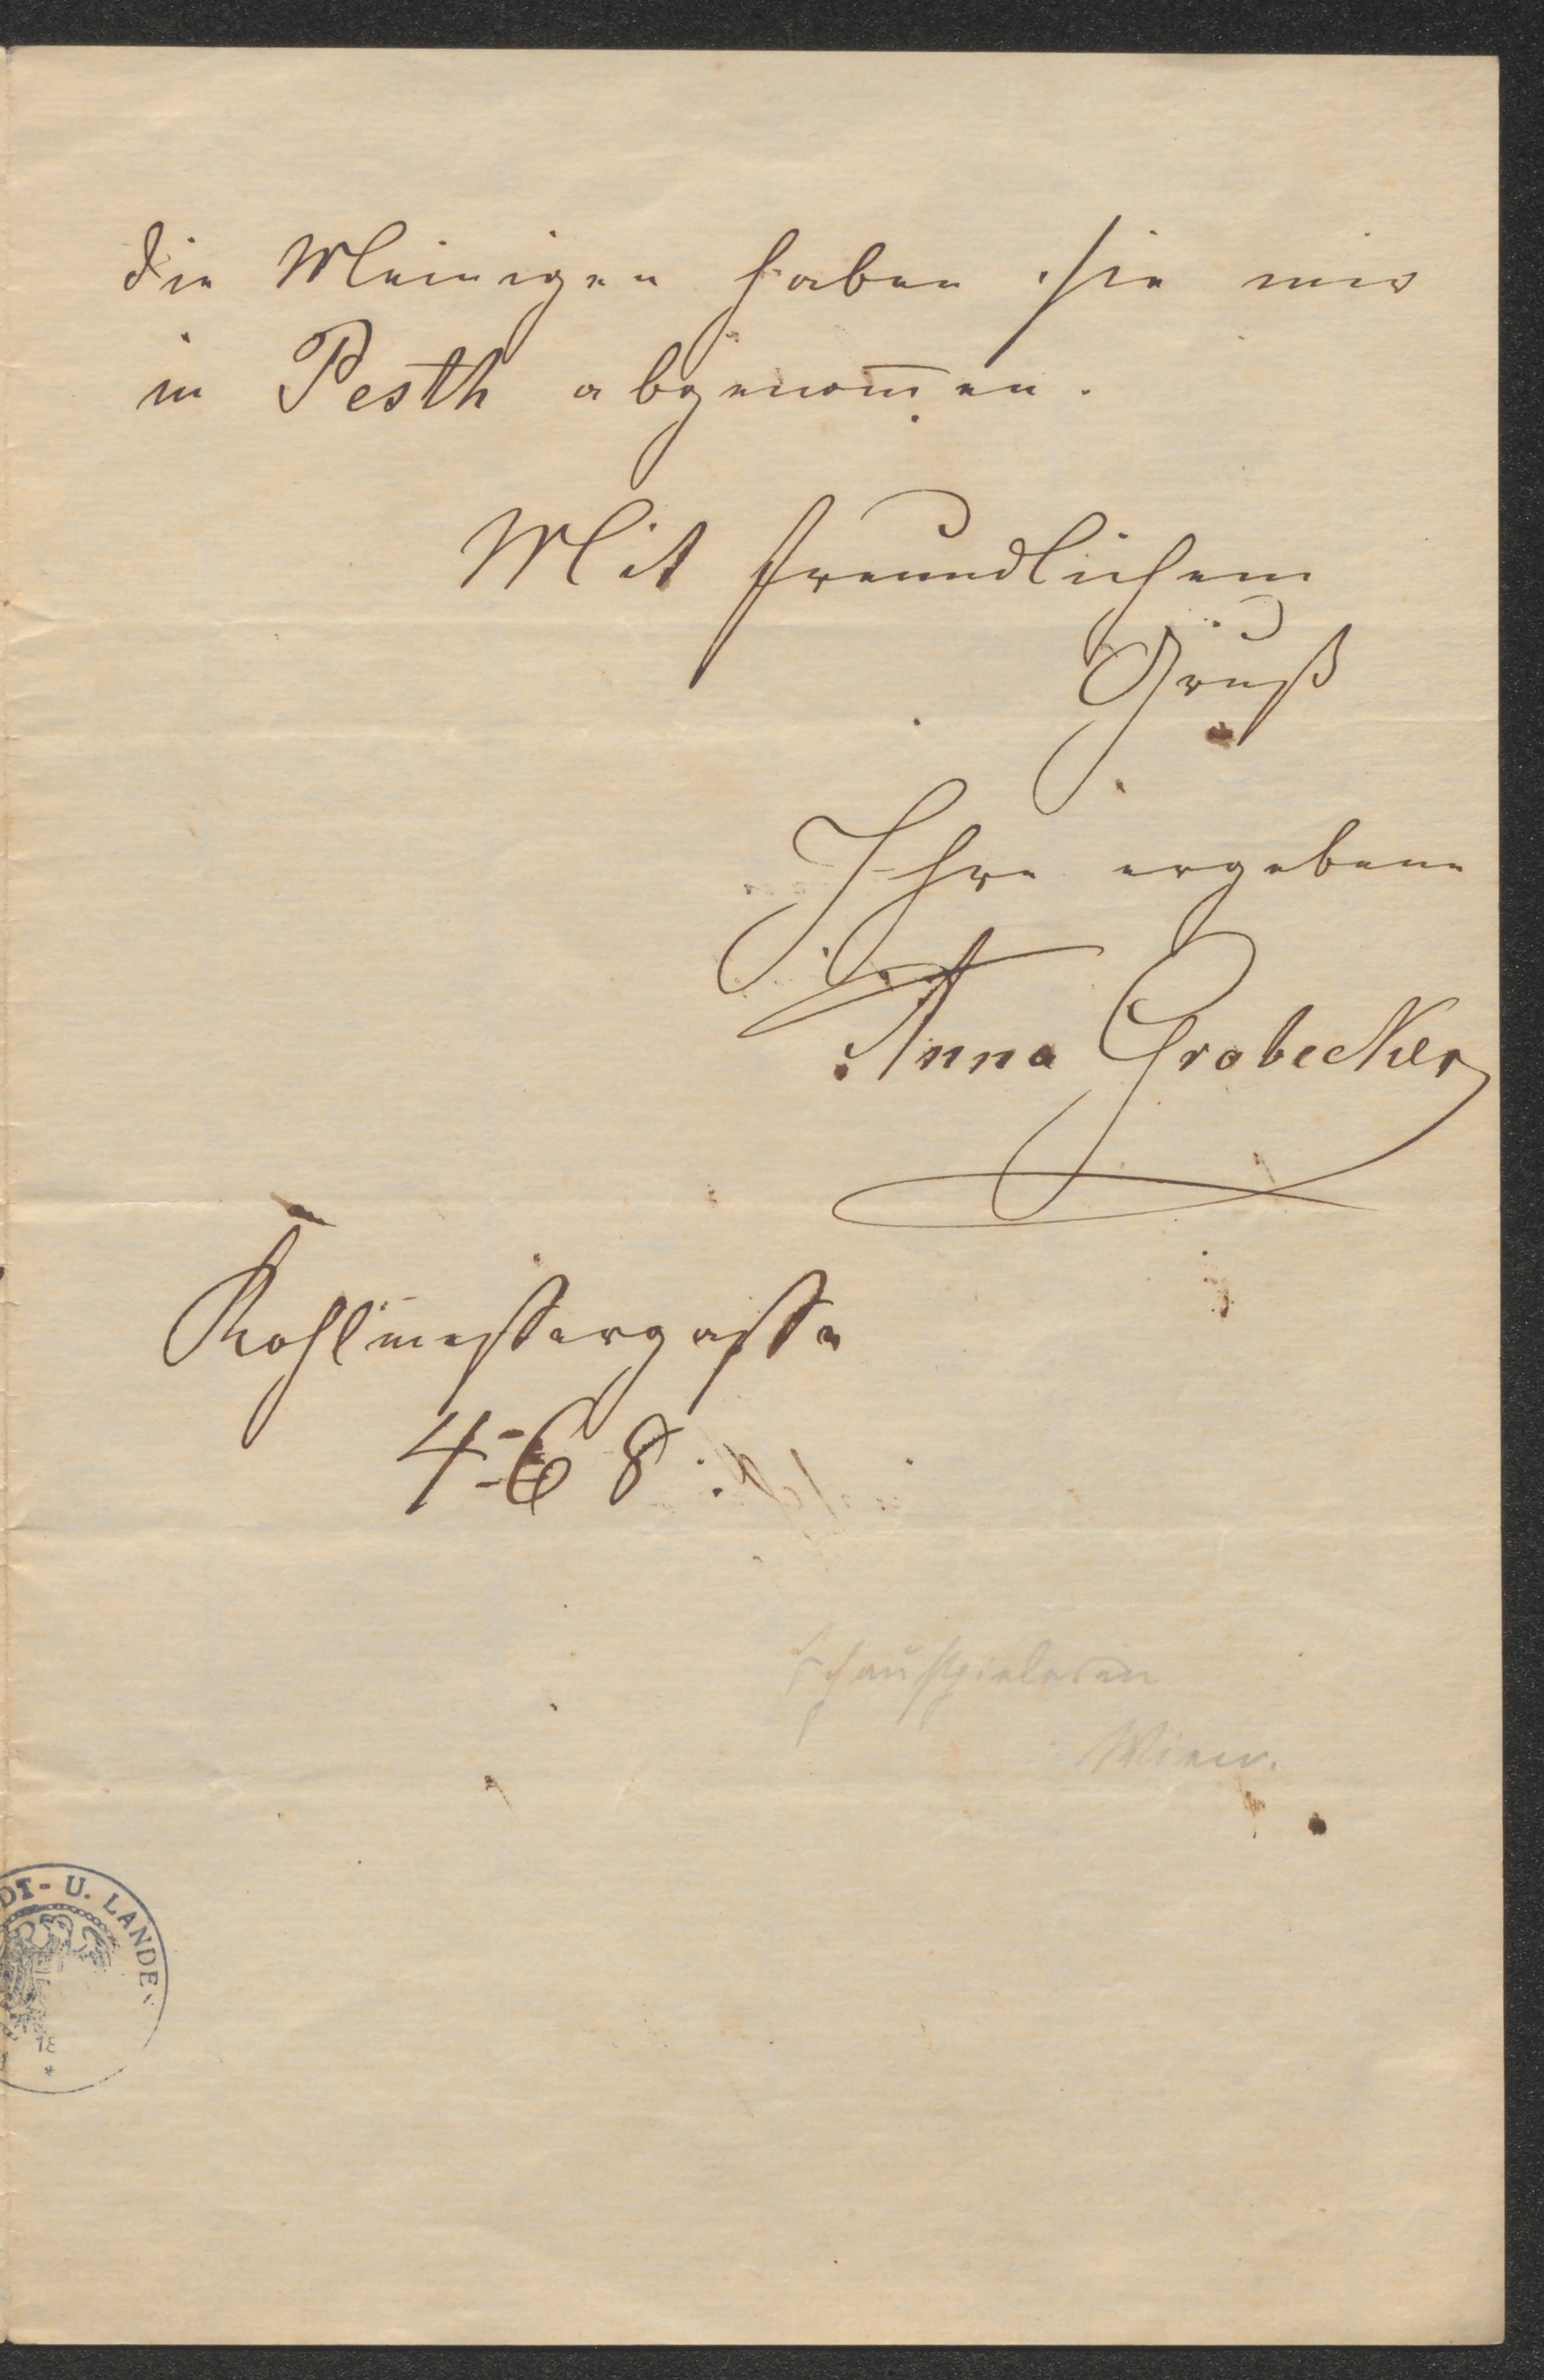 die Meinigen haben sie mir
in Pesth abgenom̅en.
Mit freundlichem
Gruß
Ihre ergebene
Anna Grobecker
Kohlmessergasse
468.
Schauspielerin
Wien.
DT- U. LANDES
18